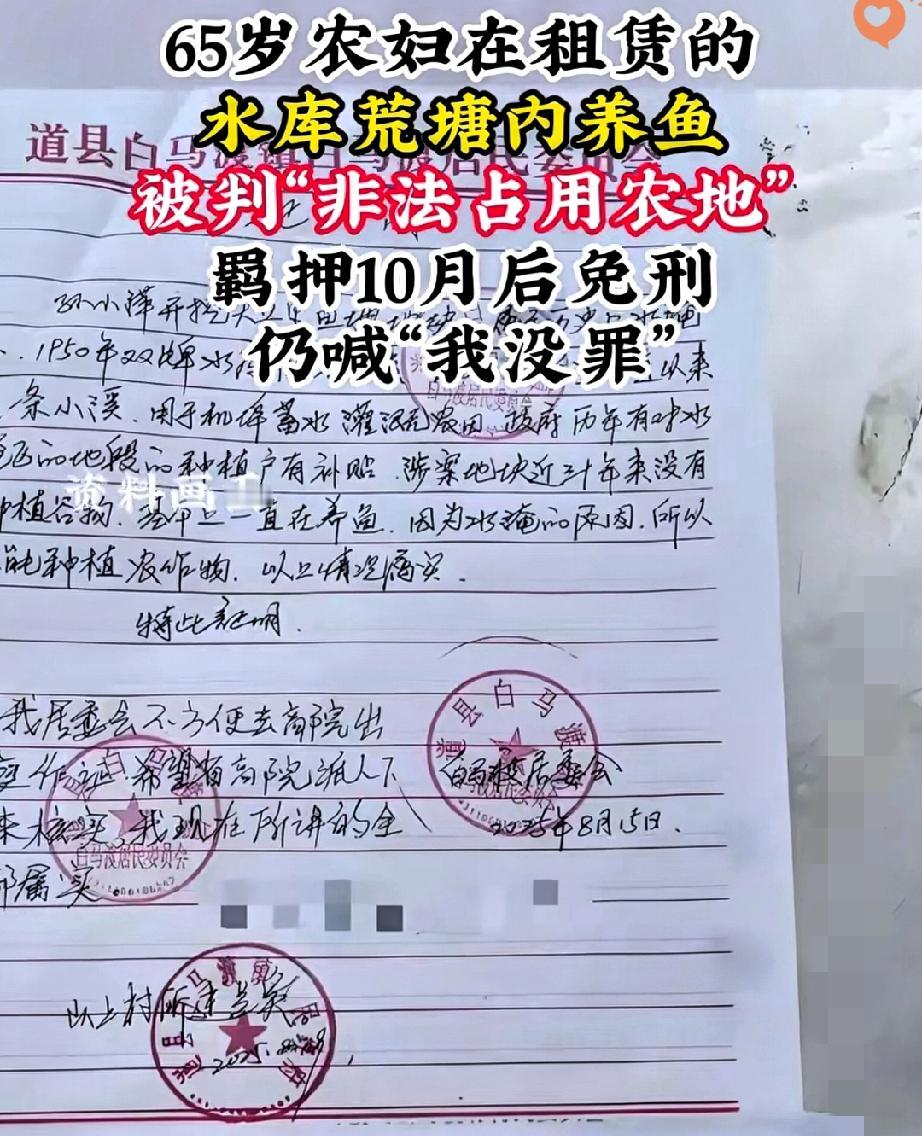 65岁农妇在租赁的
水库荒塘内养鱼
道县白马渡镇白马渡居民委员会
被判“非法占用农地”
羁押10月后免刑
仍喊“我没罪”
1950年双牌水 以来
条小溪,用于机埠蓄水灌溉农田,政府历年有对水
的地段的种植户有补贴,涉案地块近三十年来没有
资料画面
种植谷物,基本上一直在养鱼,因为水淹的原因,所以
能种植农作物,以上情况属实。
特此证明.
我居委会不方便去高院出
庭作证,希望省高院派人下
来核实,我现在所讲的全
都属实
白马渡居委会
2025年8月15日.
道县白马渡
白马渡居民委员会
以上村所述属实